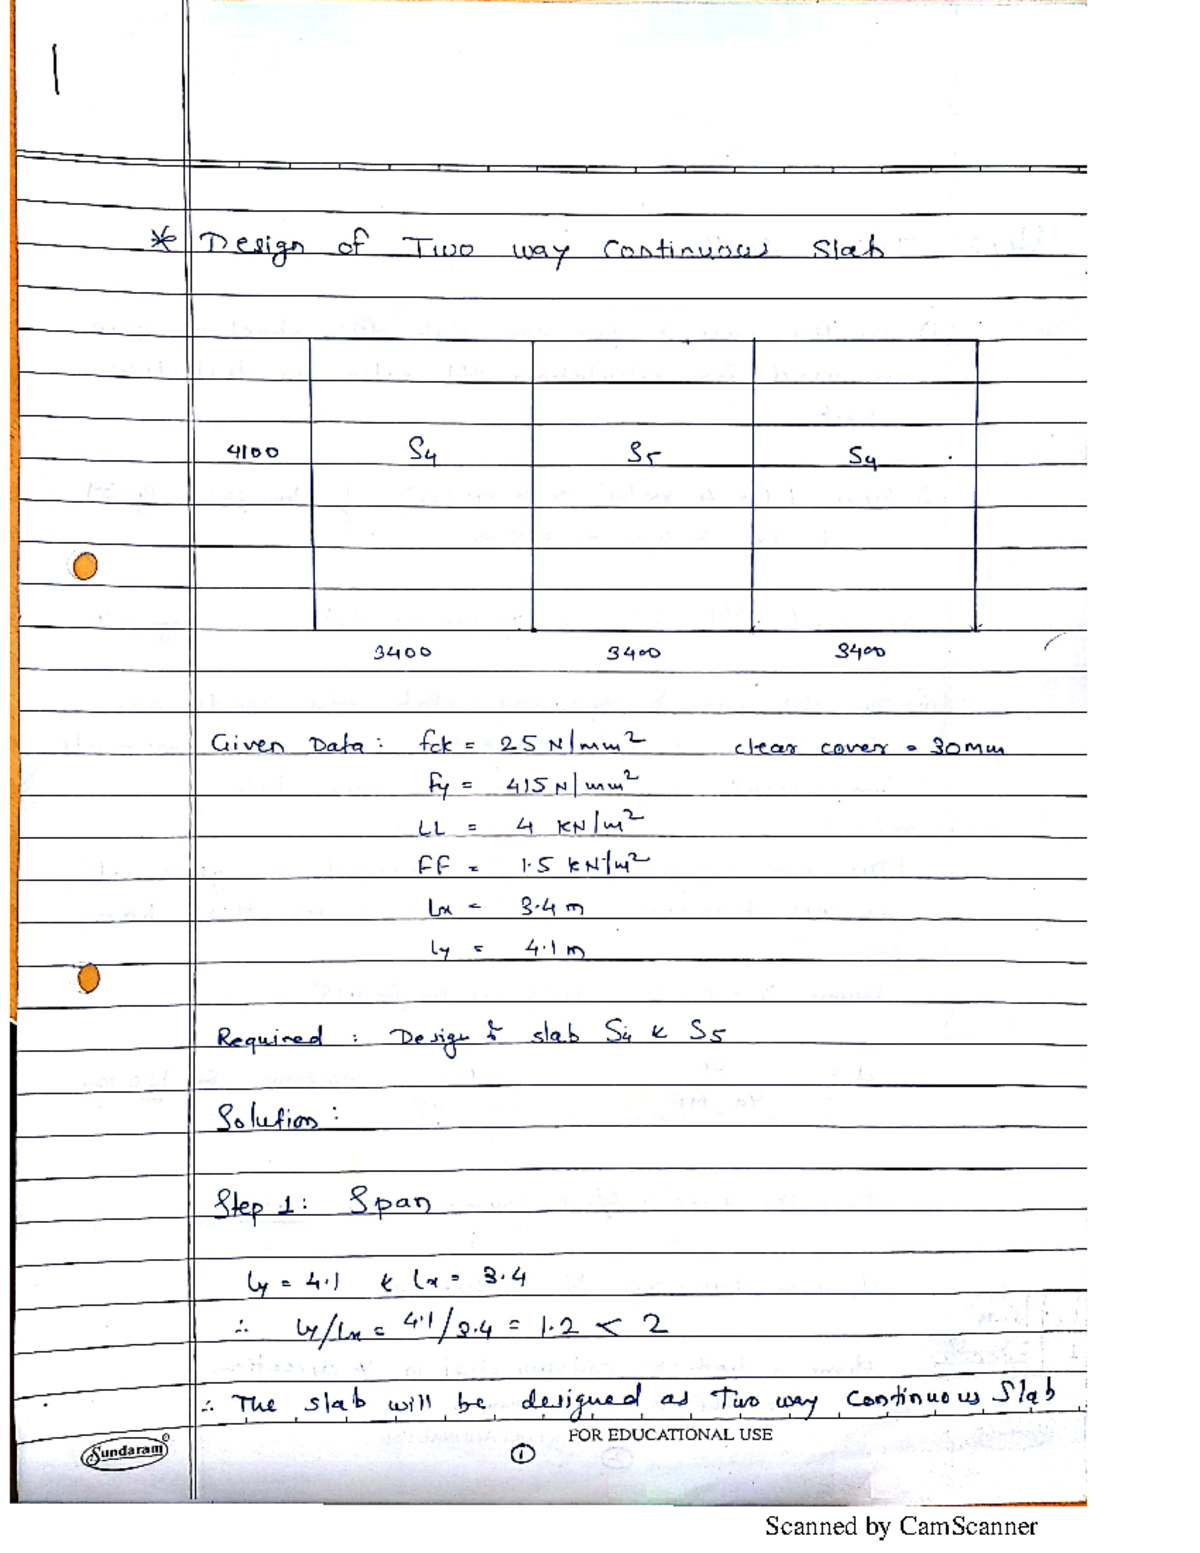 1
* Design of Two way Continuous Slab
4100 S4 S5 S4
3400 3400 3400
Given Data: fck = 25 N/mm² clear cover = 30mm
Fy = 415 N/mm²
LL = 4 KN/m²
FF = 1.5 KN/m²
lx = 3.4 m
ly = 4.1 m
Required : Design slab S4 & S5
Solution:
Step 1: Span
ly = 4.1 & lx = 3.4
∴ ly/lx = 4.1/3.4 = 1.2 < 2
∴ The slab will be designed as Two way Continuous Slab
FOR EDUCATIONAL USE
Sundaram®
1
Scanned by CamScanner